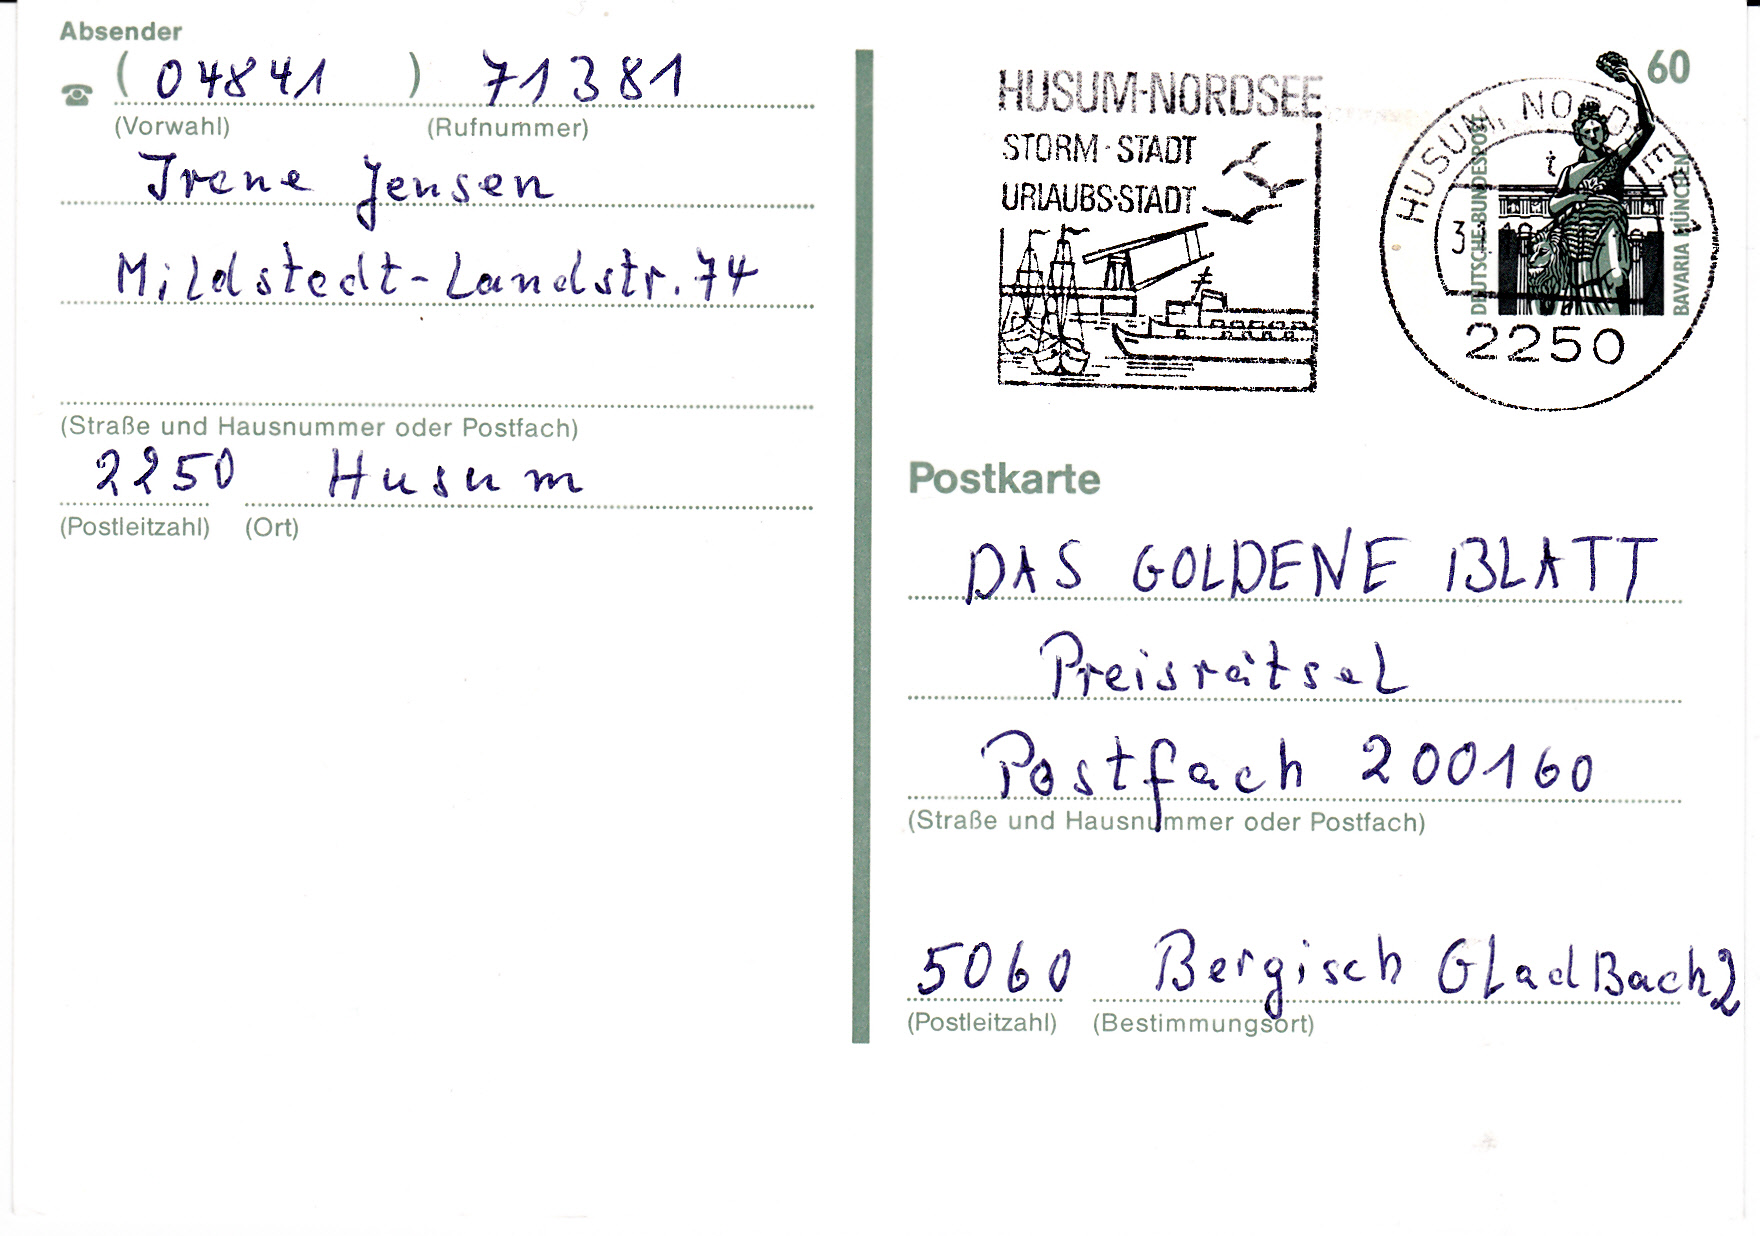 Absender
(04841) 71381
(Vorwahl) (Rufnummer)
Irene Jensen
Mildstedt-Landstr. 74
(Straße und Hausnummer oder Postfach)
2250 Husum
(Postleitzahl) (Ort)
HUSUM-NORDSEE
STORM-STADT
URLAUBS-STADT
60
HUSUM, NORDSEE 1
t
DEUTSCHE BUNDESPOST
BAVARIA MÜNCHEN
2250
Postkarte
DAS GOLDENE BLATT
Preisrätsel
Postfach 200160
(Straße und Hausnummer oder Postfach)
5060 Bergisch GLadBach 2
(Postleitzahl) (Bestimmungsort)